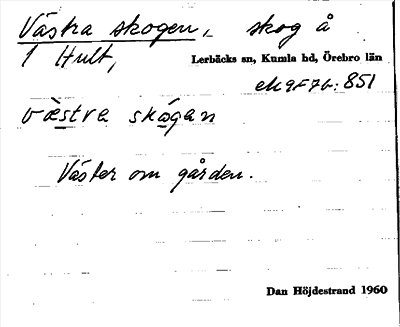 Västra skogen, skog å
1 Hult,
Lerbäcks sn, Kumla hd, Örebro län
ek 9F7b:851
vèstra skógan
Väster om gården.
Dan Höjdestrand 1960